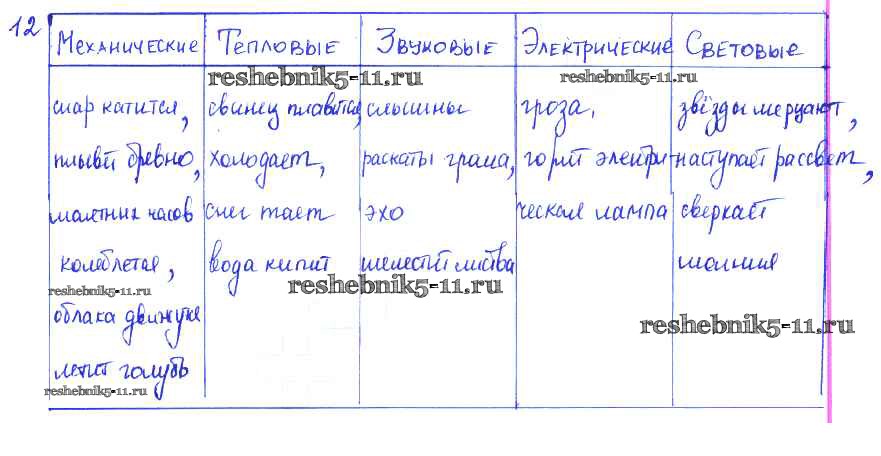 12
Механические Тепловые Звуковые Электрические Световые
reshebnik5-11.ru reshebnik5-11.ru
шар катится, свинец плавится, слышны гроза, звёзды мерцают,
плывёт бревно, холодает, раскаты грома, горит электри- наступает рассвет,
маятник часов снег тает эхо ческая лампа сверкает
колеблется, вода кипит шелестит листва молния
reshebnik5-11.ru reshebnik5-11.ru
облака движутся
reshebnik5-11.ru
летит голубь
reshebnik5-11.ru